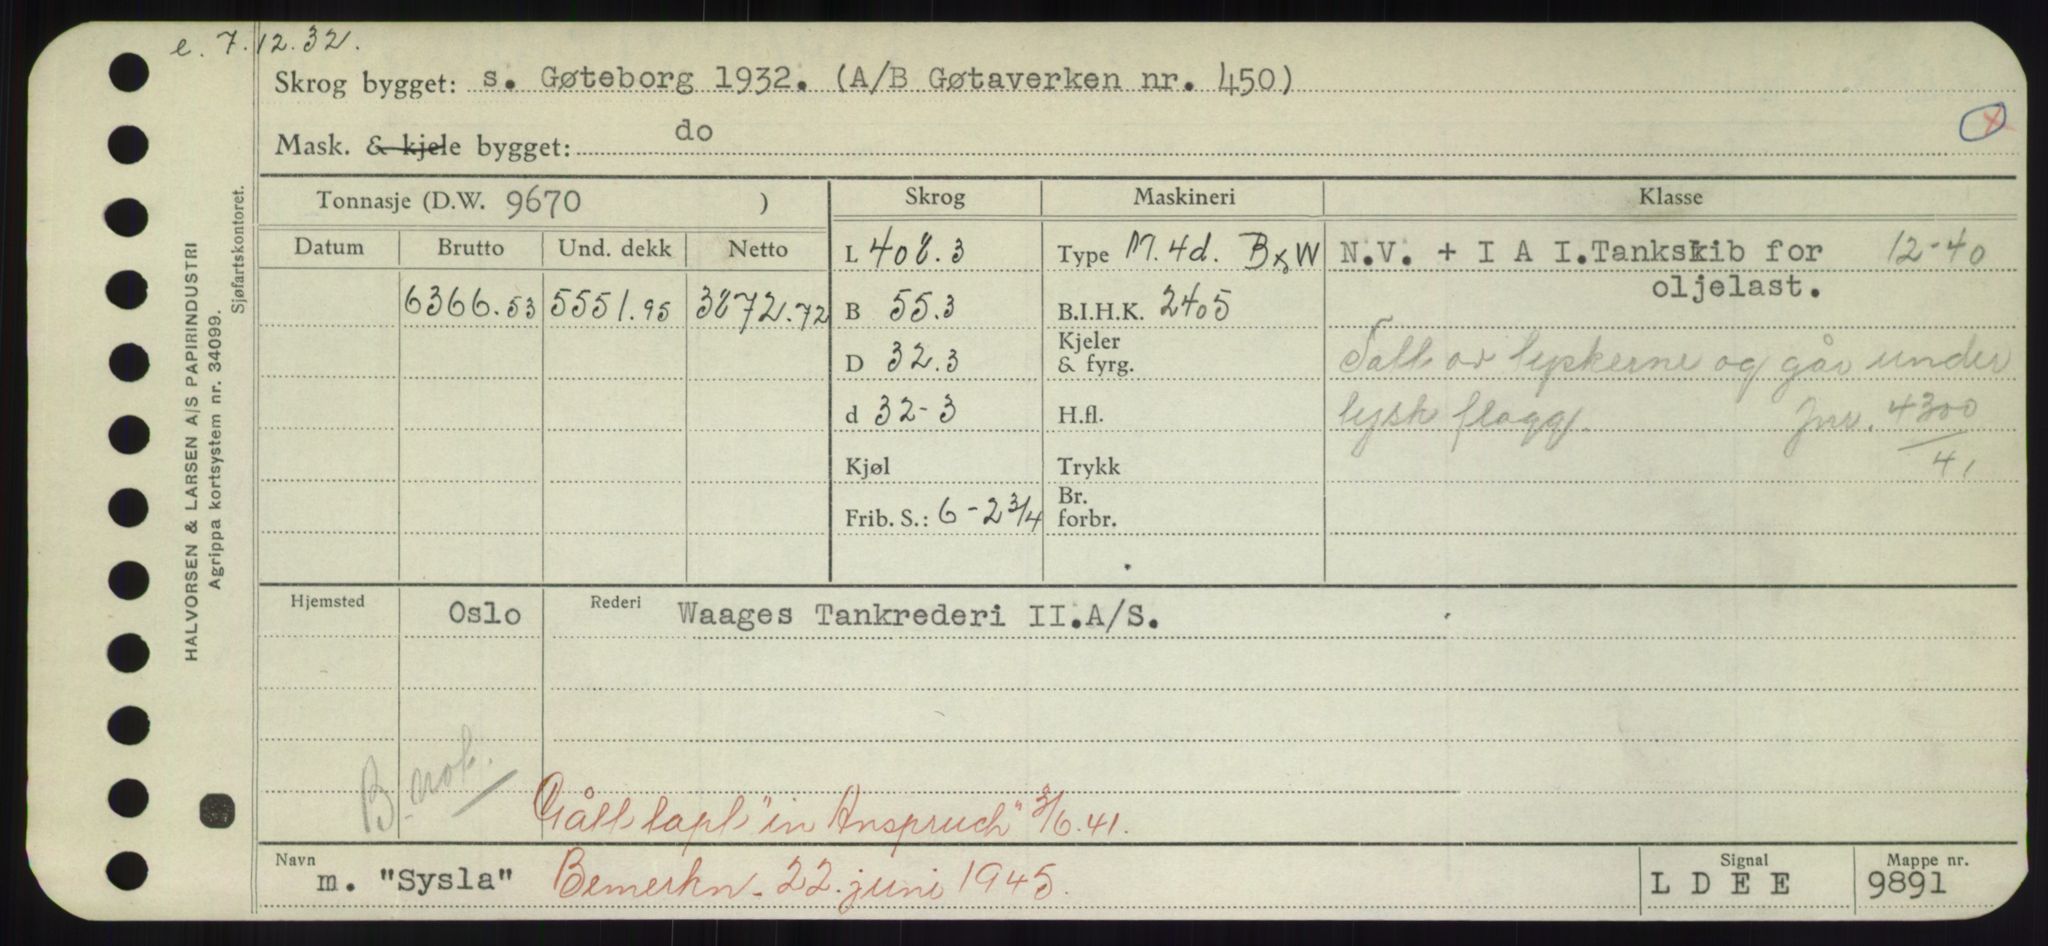 e. 7.12.32.
Skrog bygget: s. Gøteborg 1932. (A/B Gøtaverken nr. 450)
Mask. & kjele bygget: do
Tonnasje (D.W. 9670 ) Skrog Maskineri Klasse
Datum Brutto Und. dekk Netto
L 408.3 Type M. 4d. B&W N.V. + I A I. Tankskib for 12-40
oljelast.
6366.53 5551.95 3872.72 B 55.3 B.I.H.K. 2405
D 32.3 Kjeler & fyrg. Tatt av tyskerne og går under
d 32-3 H.fl. tysk flagg. Jnr. 4300/41
Kjøl Trykk
Frib. S.: 6-2 3/4 Br. forbr.
Hjemsted Oslo Rederi Waages Tankrederi II.A/S.
B.
Gått tapt "in Anspruch" 3/6.41.
Navn m. "Sysla" Bemerkn. 22. juni 1945. Signal L D E E Mappe nr. 9891
HALVORSEN & LARSEN A/S PAPIRINDUSTRI
Agrippa kortsystem nr. 34099.
Sjøfartskontoret.